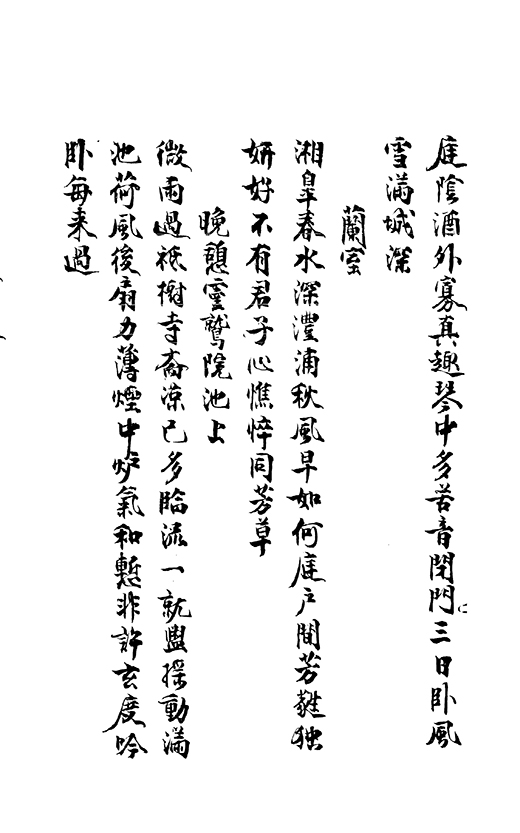 庭陰酒外寡真趣琴中多苦音閉門三日卧風
雪滿城深
蘭室
湘皐春水深澧浦秋風早如何庭戶間芳蕤独
妍好不有君子心憔悴同芳草
晚憩靈鷲院池上
微雨過祗樹寺斋涼已多臨流一就盥採動滿
池荷風後扇力薄煙中炉氣和慙非許玄度吟
卧每来過